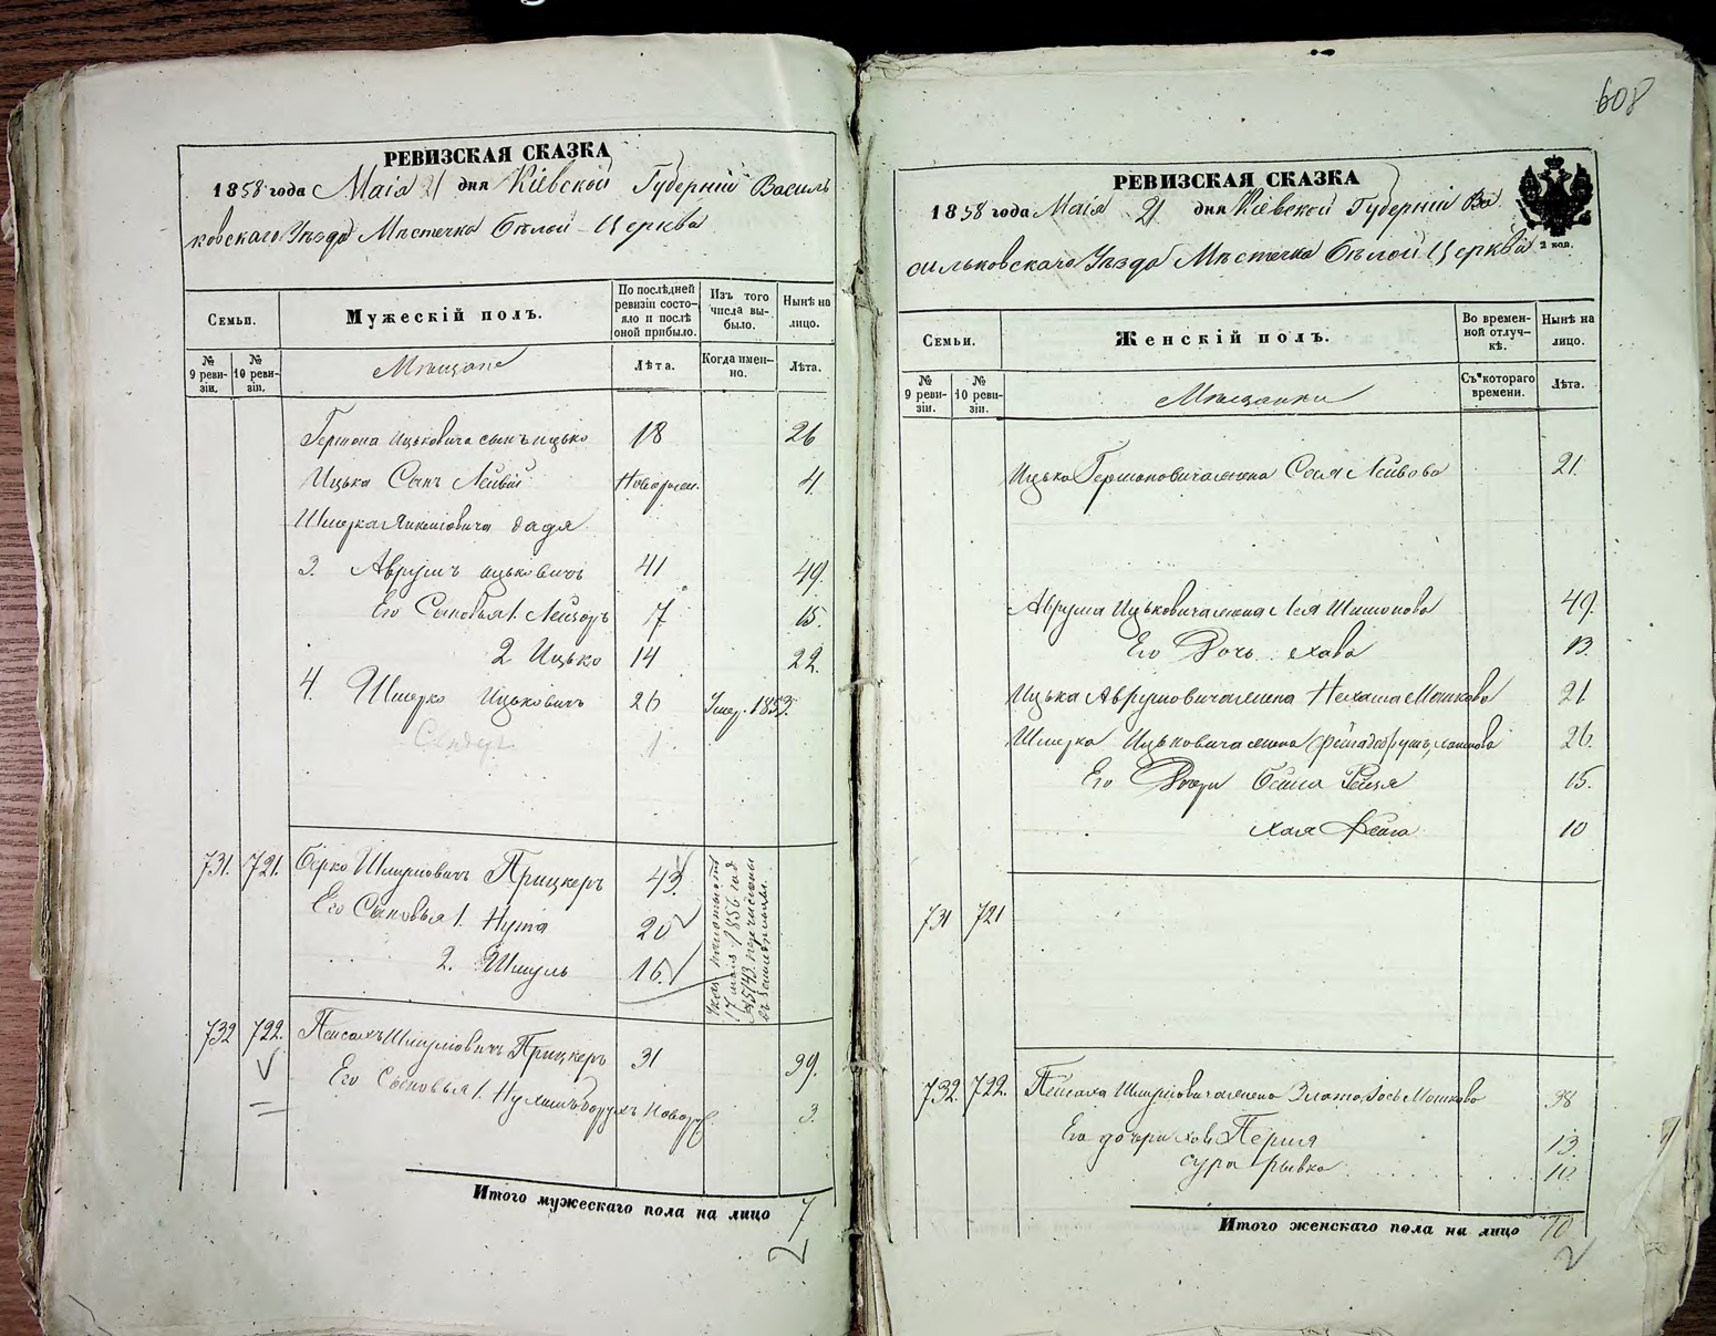 РЕВИЗСКАЯ СКАЗКА
1858 года Маія 21 дня Кіевской Губерніи Василь
ковскаго Уѣзда Мѣстечка Бѣлой-Церкви
Семьи.
Мужескій полъ.
По послѣдней ревизіи состояло и послѣ оной прибыло.
Изъ того числа выбыло.
Нынѣ на лицо.
№ 9 ревизіи.
№ 10 ревизіи.
Мѣщане
Лѣта.
Когда именно.
Лѣта.
Гершона Ицьковича сынъ Ицько 18 26
Ицька Сынъ Лейвій Новорожден. 4.
Шмерка Янкелевича дядя
3. Аврумъ Ицьковичъ 41 49.
Его Сыновья 1. Лейзоръ 7 15.
2 Ицько 14 22.
4. Шмерко Ицьковичъ 26 Умер. 1853.
1.
731. 721. Берко Шмулиовичъ Прицкеръ 43.
Его Сыновья 1. Нута 20
2. Шмуль 16
17 мая 1856 год
№ 5143 перечислены
въ земледѣльцы.
732 722. Пейсахъ Шмулиовичъ Прицкеръ 31 39.
Его Сыновья 1. Нухимъ Борухъ Новорож. 3.
Итого мужескаго пола на лицо 7
608
РЕВИЗСКАЯ СКАЗКА
1858 года Маія 21 дня Кіевской Губерніи Ва
сильковскаго Уѣзда Мѣстечка Бѣлой Церкви
2 коп.
Семьи.
Женскій полъ.
Во временной отлучкѣ.
Нынѣ на лицо.
№ 9 ревизіи.
№ 10 ревизіи.
Мѣщанки
Съ котораго времени.
Лѣта.
Ицька Гершоновича жена Сося Лейбова 21.
Аврума Ицьковича жена Лея Шимонова 49.
Его Дочь Хава 13.
Ицька Аврумовича жена Нехама Мошкова 21
Шмерка Ицьковича жена 26.
Его Дочери Бейла Рейзя 15.
Хая Фейга 10
731 721
732. 722. Пейсаха Шмулиовича жена Злата Мошкова 38
Его дочери Хая Перля 13.
Сура Рывка 10.
Итого женскаго пола на лицо 10